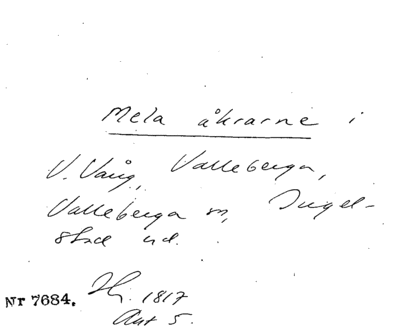 Mela åkrarne i
V. Vång, Valleberga,
Valleberga sn, Ingel-
stad hd.
Nr 7684. 1817
Akt 5.